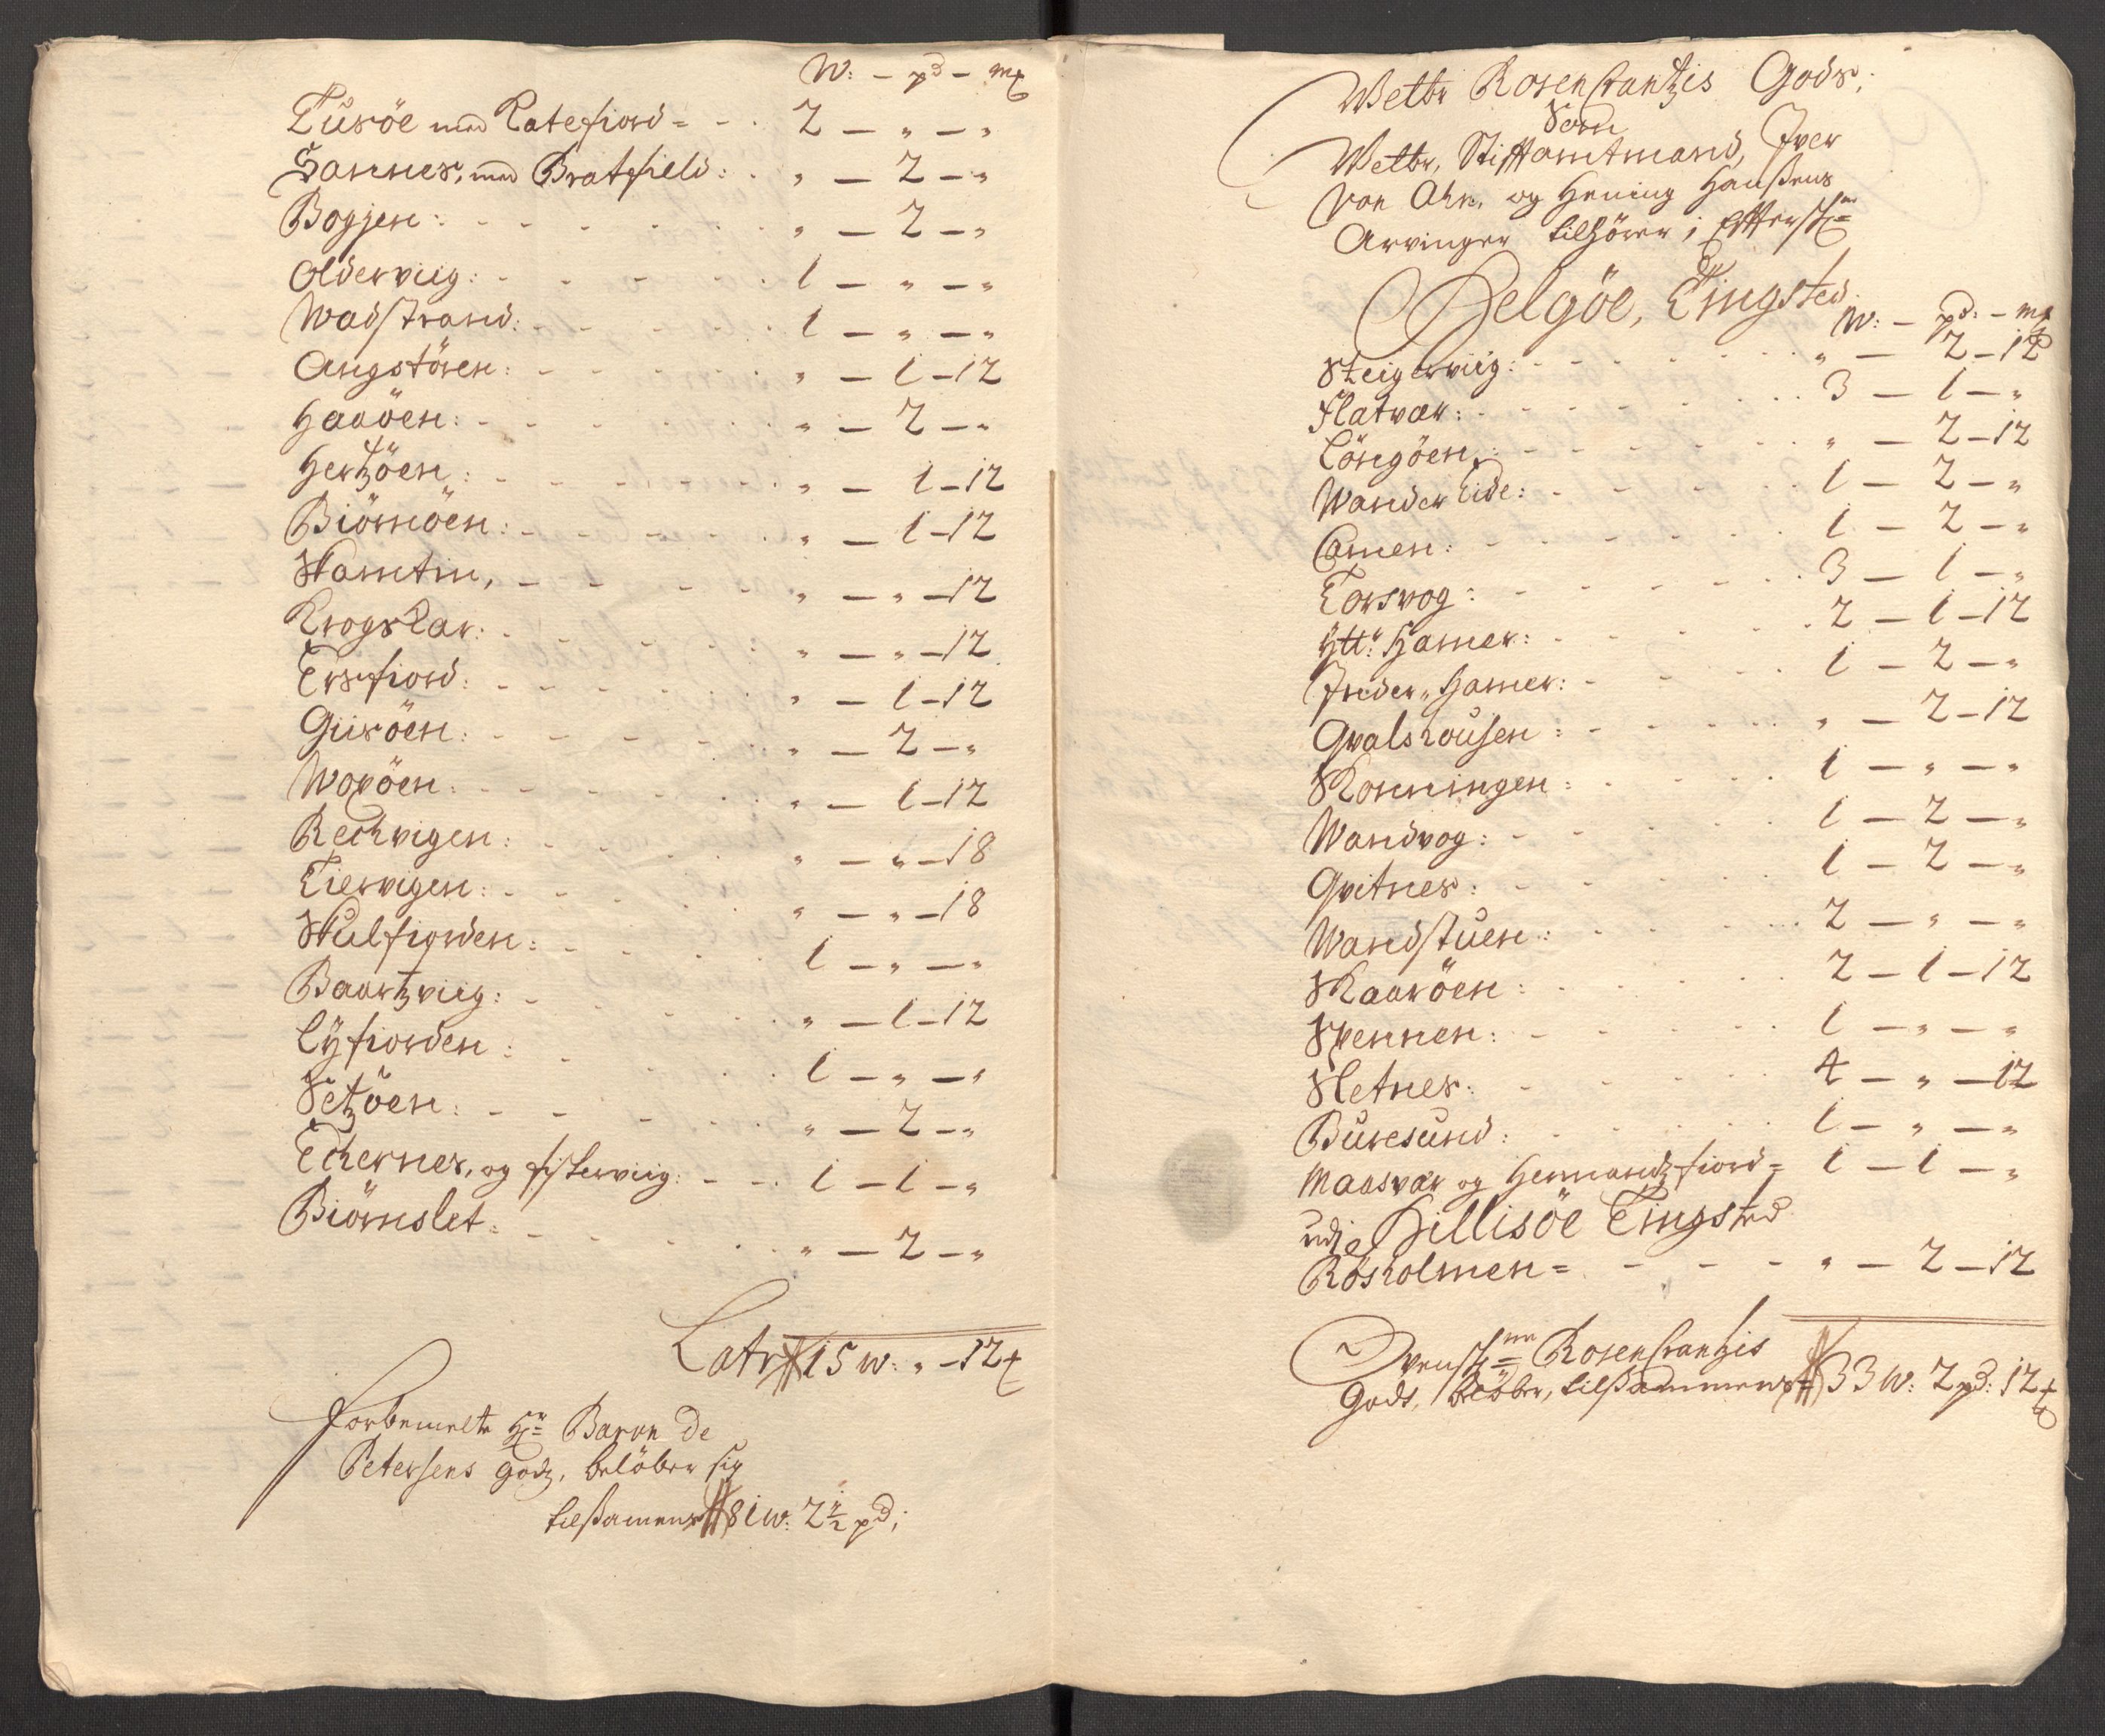 W: - pd - mk
Tusöe med Katefiord = - . 2 - " - "
Sannes, med Bratfield : . " - 2 - "
Bogjen : - - - " - 2 - "
Olderviig : - - - 1 - " - "
Wadstrand : - - - 1 - " - "
Angstören : - - - " - 1 - 12
Haaöen : - - - " - 2 - "
Hertzöen : - - - " - 1 - 12
Biörnöen : - - - " - 1 - 12
Skamtin, - - - " - " - 12
Krogskar : - - - " - " - 12
Ersfiord : - - - " - 1 - 12
Giisöen : - - - " - 2 - "
Woxöen : - - - " - 1 - 12
Rechvigen : - - - " - " - 18
Tiervigen : - - - " - " - 18
Skulfiorden : - - - 1 - " - "
Baartzviig : - - - " - 1 - 12
Lyfiorden : - - - 1 - " - "
Setzöen : - - - " - 2 - "
Echernes, og fiskerviig : - - 1 - 1 - "
Biörnslet = - - - " - 2 - "
Latr 15 w: " - 12
Forbemelte Hr Baron de
Petersens godz, belöber sig
tilsamens 81 w: 2 1/2 pd;
Welbr Rosencrantzis Gods,
Som
Welbr, Stifftamtmand, Iver
von Ahn, og Hening Hansens
Arvinger tilhörer i Effterskr
Helgöe, Tingsted
W: - pd: - mk
Skeigerviig : - - - " - 2 - 12
Flatvær : - - - 3 - 1 - "
Löngöen : - - - " - 2 - 12
Wander Eide : - - - 1 - 2 - "
Camen : - - - 1 - 2 - "
Torsvog : - - - 3 - 1 - "
Ytt: Hamer : - - - 2 - 1 - 12
Inder Hamer : - - - 1 - 2 - "
Qvalskousen : - - - " - 2 - 12
Skonningen : - - - 1 - " - "
Wandvog : - - - 1 - 2 - "
Qvitnes : - - - 1 - 2 - "
Wandstuen : - - - 2 - " - "
Skaaröen : - - - 2 - 1 - 12
Spennen : - - - 1 - " - "
Sletnes : - - - 4 - " - 12
Buresund : - - - 1 - " - "
Maasvær og Hermandzfiord = 1 - 1 - "
udj Hillisöe Tingsted
Rösholmen = - - - " - 2 - 12
Ovenskr Rosencrantzis
Gods, belöber, tilsammens 33 W: 2 pd: 12